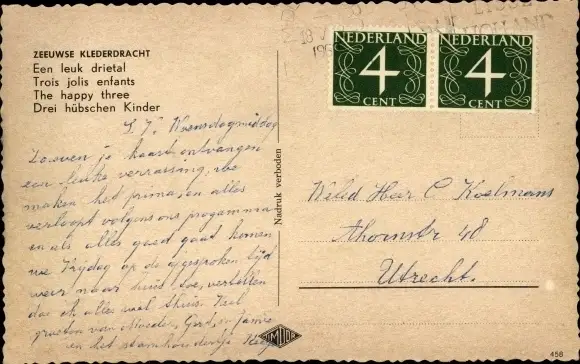 ZEEUWSE KLEDERDRACHT
Een leuk drietal
Trois jolis enfants
The happy three
Drei hübschen Kinder
L. V. Woensdagmiddag
Zoeven je kaart ontvangen
een leuke verrassing. We
maken het prima, en alles
verloopt volgens ons progamma
en als alles goed gaat komen
we Vrijdag op de afgesproken tijd
weer naar huis toe, vertellen
doe ik alles wel thuis. Veel
groeten van Moeder, Gerd, en
en het
Nadruk verboden
NEDERLAND
4
CENT
NEDERLAND
4
CENT
Weled Heer C Koelmans
Ahornstr 48
Utrecht.
458